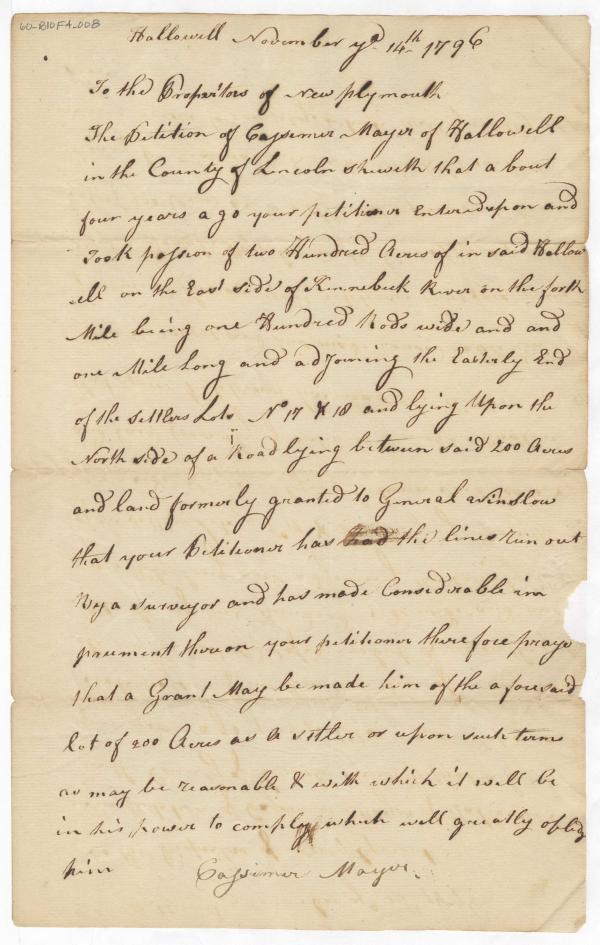 60-B10F4-008
Hallowell November yd 14th 1796
To the Propritors of New plymouth
The Petition of Cassimer Mayer of Hallowell
in the County of Lincoln sheweth that a bout
four years ago your petitioner Entered upon and
Took possion of two Hundred Acres of in said Hallow
ell on the East side of Kennebeck River on the forth
Mile being one Hundred Rods wide and and
one Mile Long and adjoining the Easterly End
of the settlers Lots No 17 & 18 and lying Upon the
North side of a Road lying between said 200 Acres
and land formerly granted to General Winslow
that your Petitioner has had the lines run out
By a surveyor and has made Considerable im
prument thereon your petitioner therefore prays
that a Grant May be made him of the aforesaid
lot of 200 Acres as a settler or upon such terms
as may be reasonable & with which it will be
in his power to comply which will greatly oblig
him Cassimer Mayer.